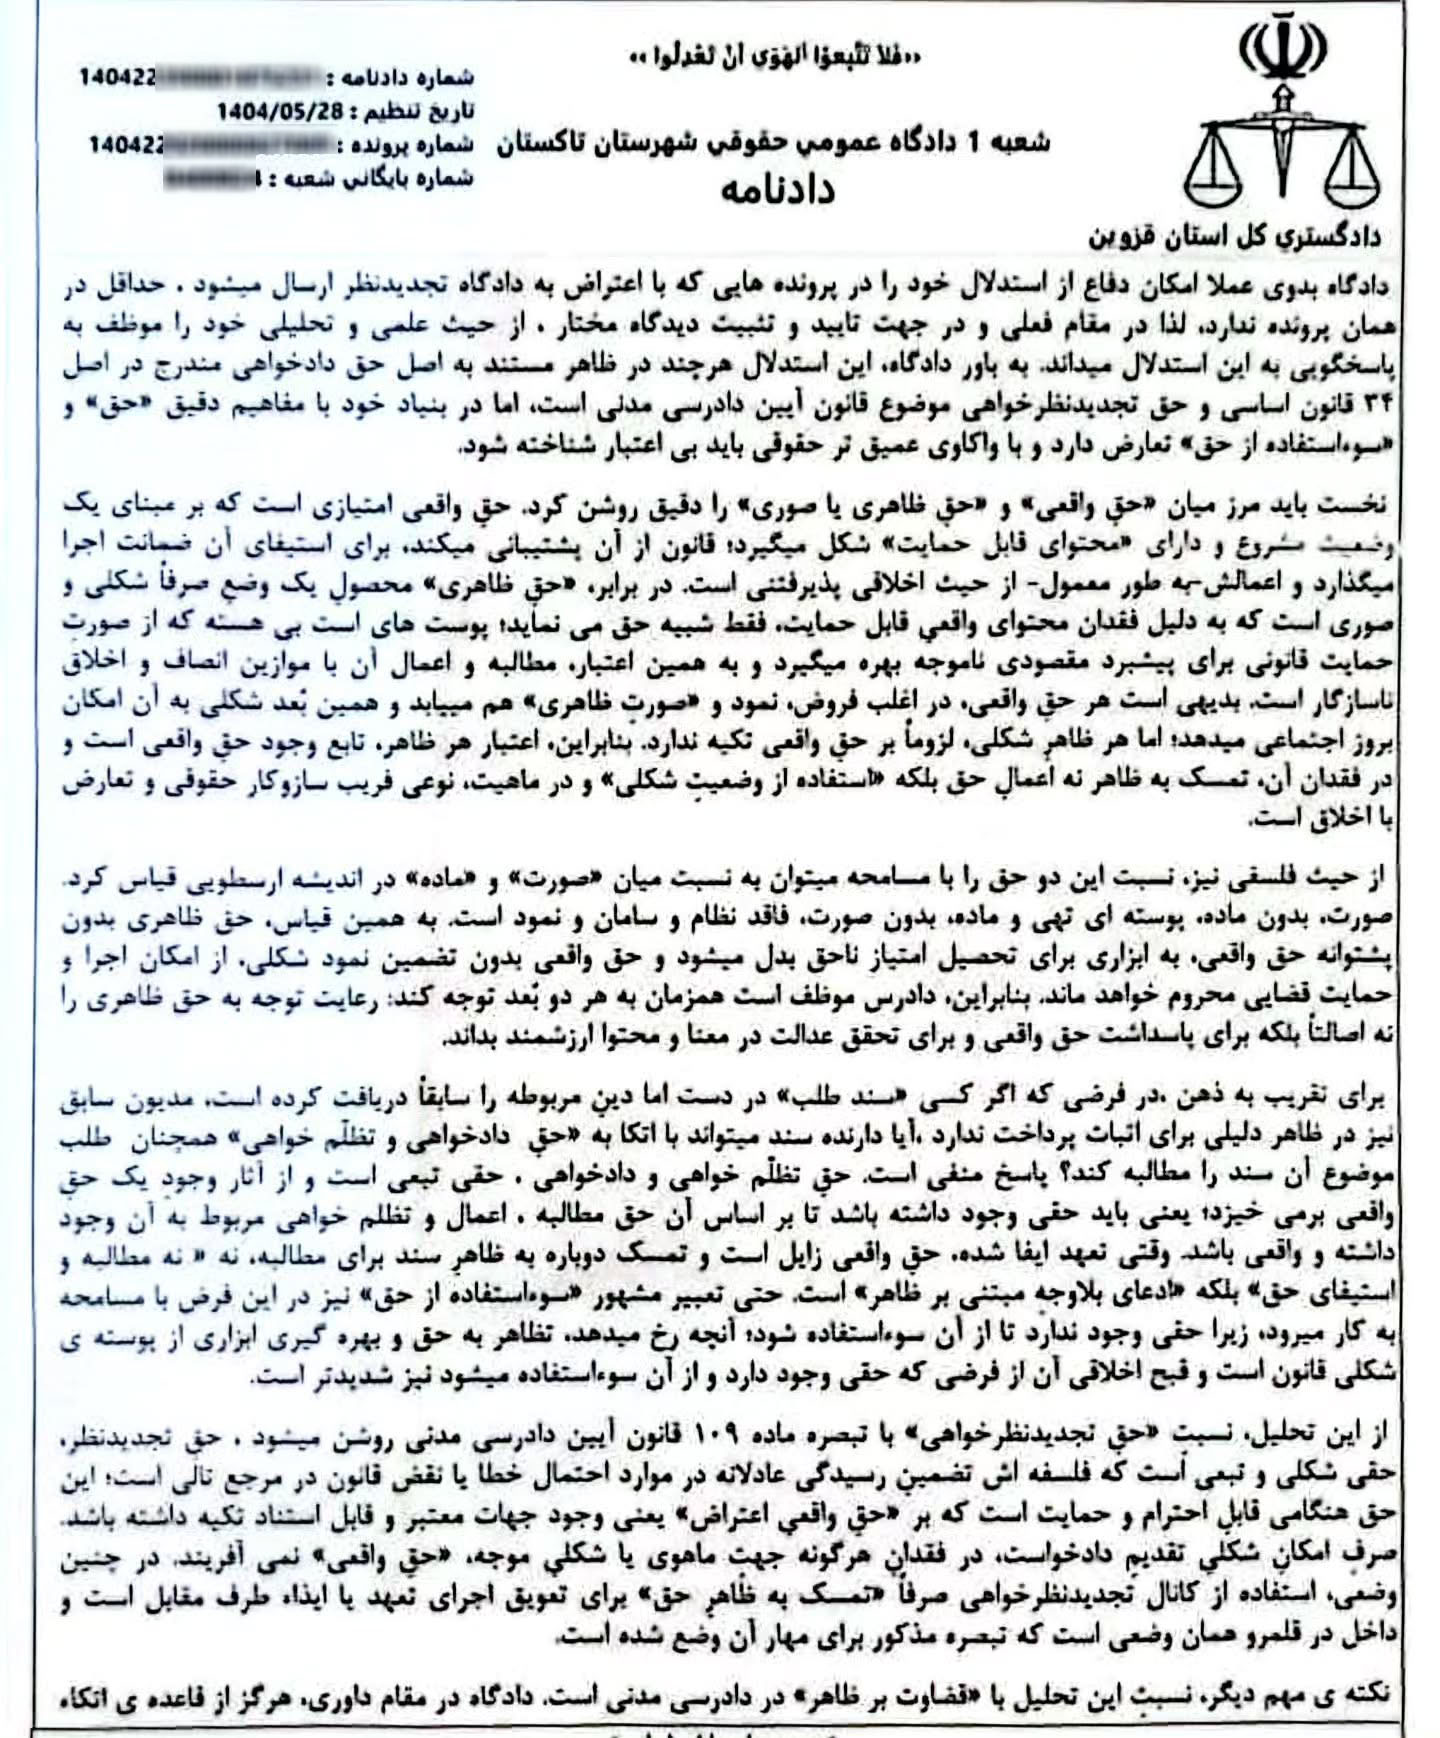 «فَلا تَتَّبِعوُا اَلهَوَی اَنْ تَعْدِلُوا»
شماره دادنامه : 140422
تاریخ تنظیم : 1404/05/28
شماره پرونده : 140422
شماره بایگانی شعبه :
شعبه 1 دادگاه عمومي حقوقي شهرستان تاکستان
دادنامه
دادگستري کل استان قزوین
دادگاه بدوی عملا امکان دفاع از استدلال خود را در پرونده هایی که با اعتراض به دادگاه تجدیدنظر ارسال میشود ، حداقل در
همان پرونده ندارد، لذا در مقام فعلی و در جهت تایید و تثبیت دیدگاه مختار ، از حیث علمی و تحلیلی خود را موظف به
پاسخگویی به این استدلال میداند. به باور دادگاه، این استدلال هرچند در ظاهر مستند به اصل حق دادخواهی مندرج در اصل
۳۴ قانون اساسی و حق تجدیدنظرخواهی موضوع قانون آیین دادرسی مدنی است، اما در بنیاد خود با مفاهیم دقیق «حق» و
«سوءاستفاده از حق» تعارض دارد و با واکاوی عمیق تر حقوقی باید بی اعتبار شناخته شود.
نخست باید مرز میان «حقِ واقعی» و «حقِ ظاهری یا صوری» را دقیق روشن کرد. حقِ واقعی امتیازی است که بر مبنای یک
وضعیت مشروع و دارای «محتوای قابل حمایت» شکل میگیرد؛ قانون از آن پشتیبانی میکند، برای استیفای آن ضمانت اجرا
میگذارد و اعمالش-به طور معمول- از حیث اخلاقی پذیرفتنی است. در برابر، «حقِ ظاهری» محصولِ یک وضعِ صرفاً شکلی و
صوری است که به دلیل فقدان محتوای واقعیِ قابل حمایت، فقط شبیه حق می نماید؛ پوست های است بی هسته که از صورتِ
حمایت قانونی برای پیشبرد مقصودی ناموجه بهره میگیرد و به همین اعتبار، مطالبه و اعمال آن با موازین انصاف و اخلاق
ناسازگار است. بدیهی است هر حقِ واقعی، در اغلب فروض، نمود و «صورتِ ظاهری» هم مییابد و همین بُعد شکلی به آن امکان
بروز اجتماعی میدهد؛ اما هر ظاهرِ شکلی، لزوماً بر حقِ واقعی تکیه ندارد. بنابراین، اعتبار هر ظاهر، تابع وجود حقِ واقعی است و
در فقدان آن، تمسک به ظاهر نه اعمالِ حق بلکه «استفاده از وضعیتِ شکلی» و در ماهیت، نوعی فریب سازوکار حقوقی و تعارض
با اخلاق است.
از حیث فلسفی نیز، نسبت این دو حق را با مسامحه میتوان به نسبت میان «صورت» و «ماده» در اندیشه ارسطویی قیاس کرد.
صورت، بدون ماده، پوسته ای تهی و ماده، بدون صورت، فاقد نظام و سامان و نمود است. به همین قیاس، حق ظاهری بدون
پشتوانه حق واقعی، به ابزاری برای تحصیل امتیاز ناحق بدل میشود و حق واقعی بدون تضمین نمود شکلی، از امکان اجرا و
حمایت قضایی محروم خواهد ماند. بنابراین، دادرس موظف است همزمان به هر دو بُعد توجه کند: رعایت توجه به حق ظاهری را
نه اصالتاً بلکه برای پاسداشت حق واقعی و برای تحقق عدالت در معنا و محتوا ارزشمند بداند.
برای تقریب به ذهن ،در فرضی که اگر کسی «سند طلب» در دست اما دینِ مربوطه را سابقاً دریافت کرده است، مدیون سابق
نیز در ظاهر دلیلی برای اثبات پرداخت ندارد ،آیا دارنده سند میتواند با اتکا به «حقِ دادخواهی و تظلّم خواهی» همچنان طلب
موضوع آن سند را مطالبه کند؟ پاسخ منفی است. حقِ تظلّم خواهی و دادخواهی ، حقی تبعی است و از آثار وجودِ یک حقِ
واقعی برمی خیزد؛ یعنی باید حقی وجود داشته باشد تا بر اساس آن حق مطالبه ، اعمال و تظلم خواهی مربوط به آن وجود
داشته و واقعی باشد. وقتی تعهد ایفا شده، حقِ واقعی زایل است و تمسک دوباره به ظاهرِ سند برای مطالبه، نه « نه مطالبه و
استیفای حق» بلکه «ادعای بلاوجهِ مبتنی بر ظاهر» است. حتی تعبیر مشهور «سوءاستفاده از حق» نیز در این فرض با مسامحه
به کار میرود، زیرا حقی وجود ندارد تا از آن سوءاستفاده شود؛ آنچه رخ میدهد، تظاهر به حق و بهره گیری ابزاری از پوسته ی
شکلی قانون است و قبح اخلاقی آن از فرضی که حقی وجود دارد و از آن سوءاستفاده میشود نیز شدیدتر است.
از این تحلیل، نسبتِ «حقِ تجدیدنظرخواهی» با تبصره ماده ۱۰۹ قانون آیین دادرسی مدنی روشن میشود ، حقِ تجدیدنظر،
حقی شکلی و تبعی است که فلسفه اش تضمینِ رسیدگی عادلانه در موارد احتمال خطا یا نقض قانون در مرجع تالی است؛ این
حق هنگامی قابلِ احترام و حمایت است که بر «حقِ واقعیِ اعتراض» یعنی وجود جهات معتبر و قابل استناد تکیه داشته باشد.
صرفِ امکانِ شکلیِ تقدیمِ دادخواست، در فقدانِ هرگونه جهتِ ماهوی یا شکلیِ موجه، «حقِ واقعی» نمی آفریند. در چنین
وضعی، استفاده از کانال تجدیدنظرخواهی صرفاً «تمسک به ظاهرِ حق» برای تعویق اجرای تعهد یا ایذاء طرف مقابل است و
داخل در قلمرو همان وضعی است که تبصره مذکور برای مهار آن وضع شده است.
نکته ی مهم دیگر، نسبتِ این تحلیل با «قضاوت بر ظاهر» در دادرسی مدنی است. دادگاه در مقام داوری، هرگز از قاعده ی اتکاء